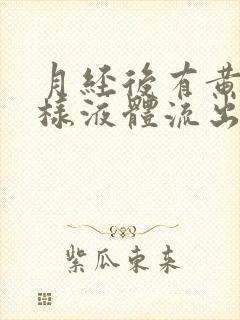 月經後有黃
樣液體流出
紫瓜東來